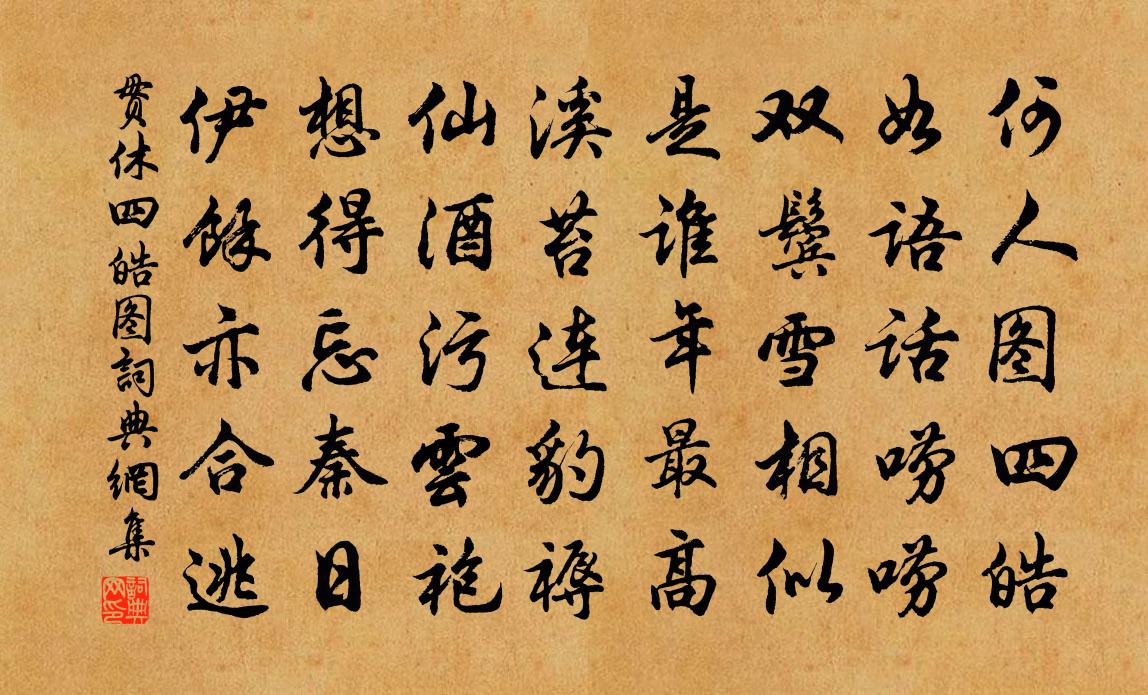 何人图四皓
如语话唠唠
双鬓雪相似
是谁年最高
溪苔連豹褥
仙酒污雲袍
想得忘秦日
伊餘亦合逃
貫休四皓图詞典網集
詞典网印